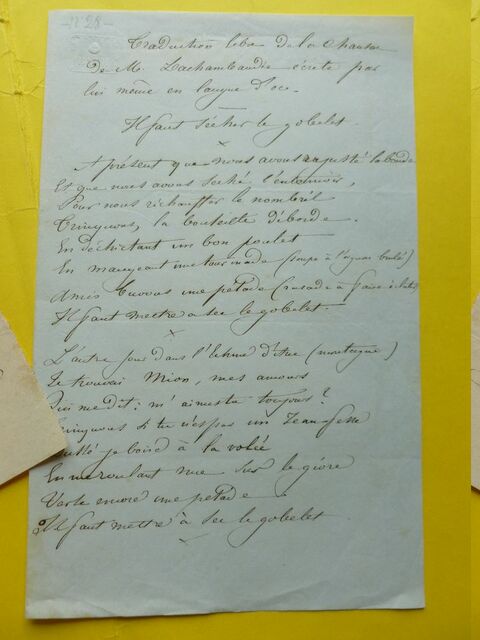 N° 28
Traduction libre de la chanson
de M. Lachambaudie écrite par
lui même en langue d'oc.
Il faut sécher le gobelet.
A présent que nous avons rajusté la bonde
Et que nous avons séché l'entonnoir,
Pour nous réchauffer le nombril
Trinquons, la bouteille déborde.
En déchictant un bon poulet
En mangeant une tourinade (soupe à l'oignon brulé)
Amis buvons une petade (rasade à faire
Il faut mettre à sec le gobelet.
L'autre jour dans l' (montagne)
Je trouvai Mion, mes amours
Qui me dit: m'aimes tu toujours?
Trinquons si tu n'es pas un Jean-fesse
je bois à la volée
En me roulant nue sur le givre
Verse encore une petade
Il faut mettre à sec le gobelet.